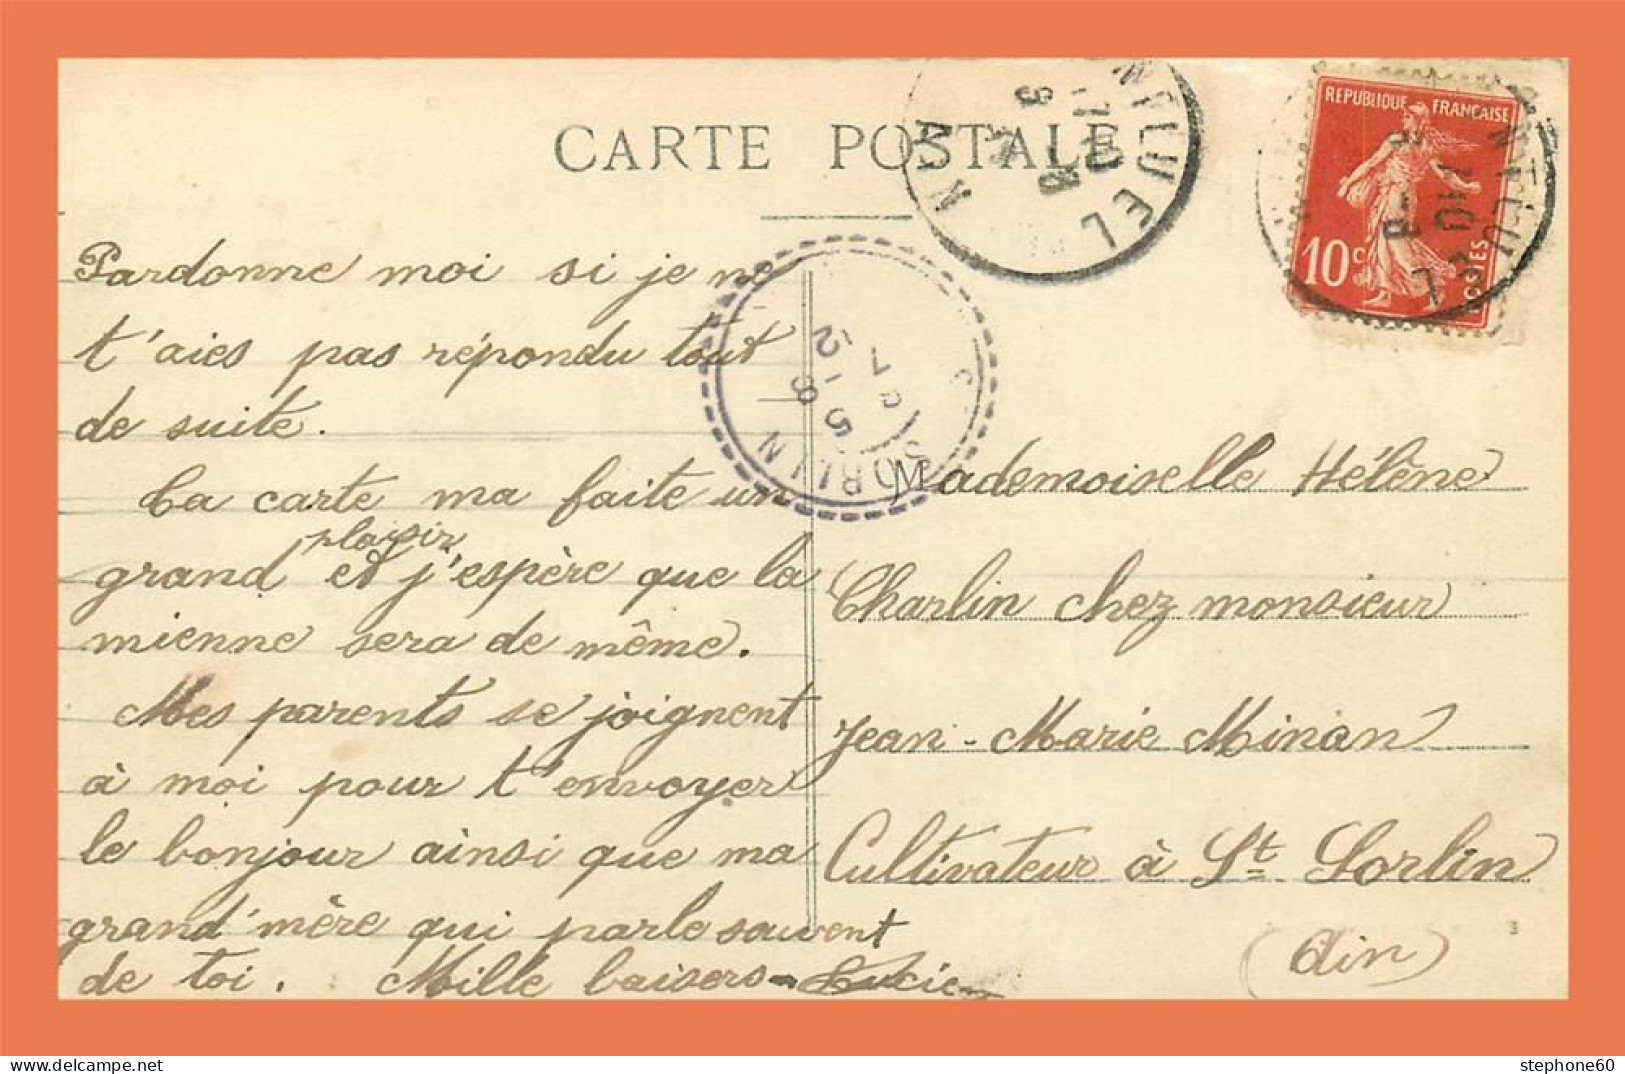 CARTE POSTALE
REPUBLIQUE FRANÇAISE
10c
POSTES
Pardonne moi si je ne
t'aies pas répondu tout
de suite.
La carte ma faite un
plaisir
grand et j'espère que la
mienne sera de même.
Mes parents se joignent
à moi pour t'envoyer
le bonjour ainsi que ma
grand'mère qui parle souvent
de toi. Mille baisers - Lucie
SORLIN
Mademoiselle Hélène
Charlin chez monsieur
Jean-Marie Minan
Cultivateur à St Sorlin
(Ain)
stephone60